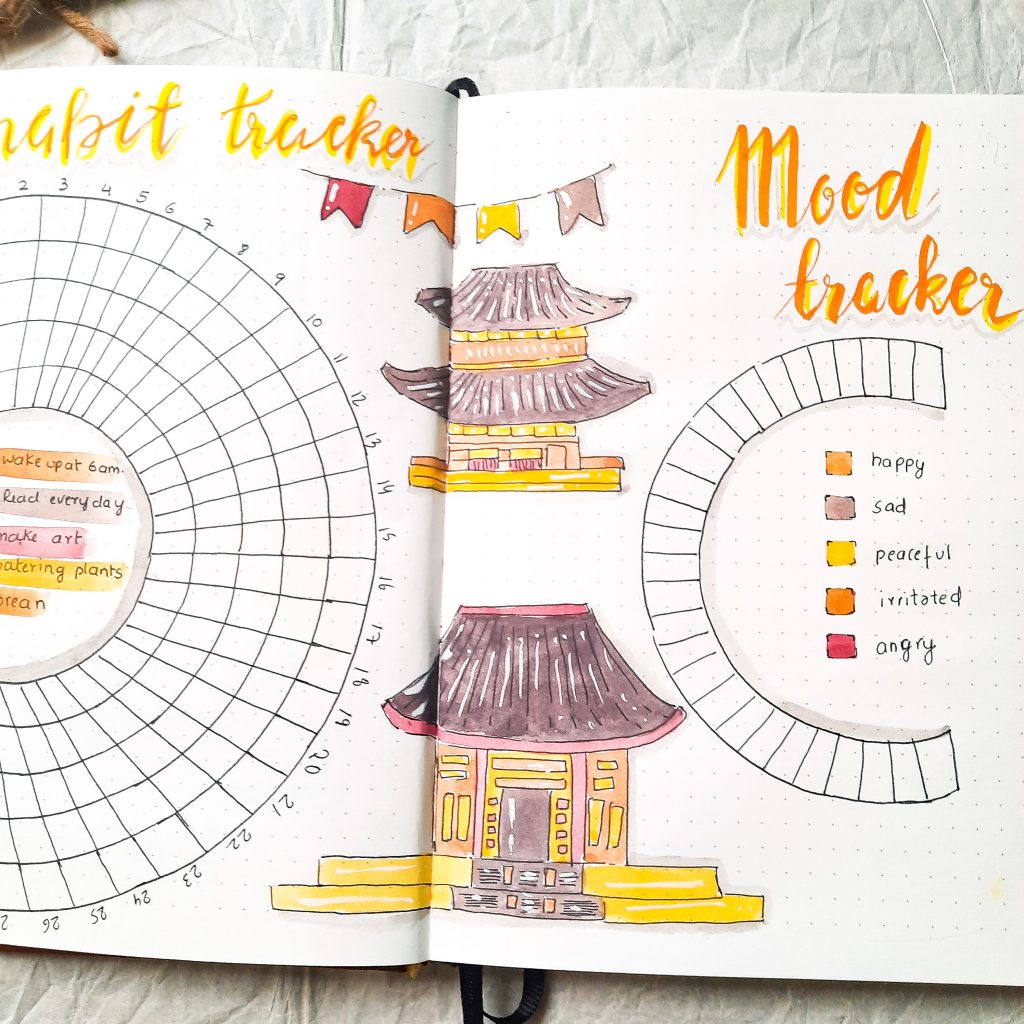 habit tracker
2 3 4 5 6 7 8 9 10 11 12 13 14 15 16 17 18 19 20 21 22 23 24 25 26 2
wake up at 6am.
Read everyday
make art
watering plants
orean
Mood
tracker
happy
sad
peaceful
irritated
angry